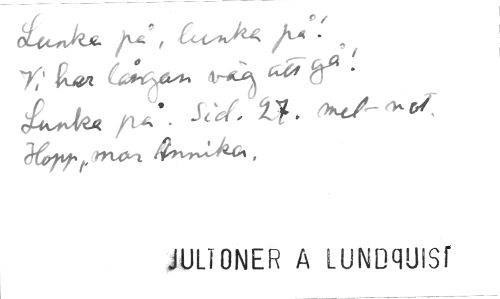 Lunka på, lunka på!
Vi har långan väg att gå!
Lunka på. Sid. 27. mel-not.
Hopp, mor Annika.
JULTONER A LUNDQUIST